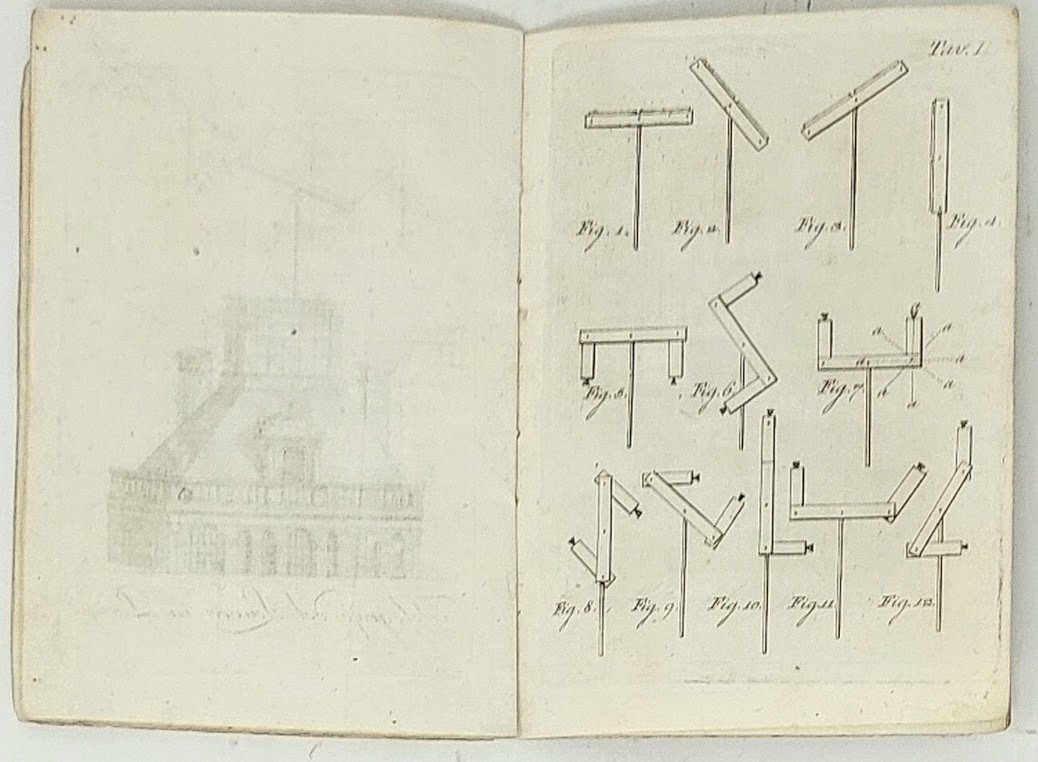 Tav. I.
Fig. 1.
Fig. 2.
Fig. 3.
Fig. 4.
a
a
a
a
a
a
d
Fig. 5.
Fig. 6.
Fig. 7.
Fig. 8.
Fig. 9.
Fig. 10.
Fig. 11.
Fig. 12.